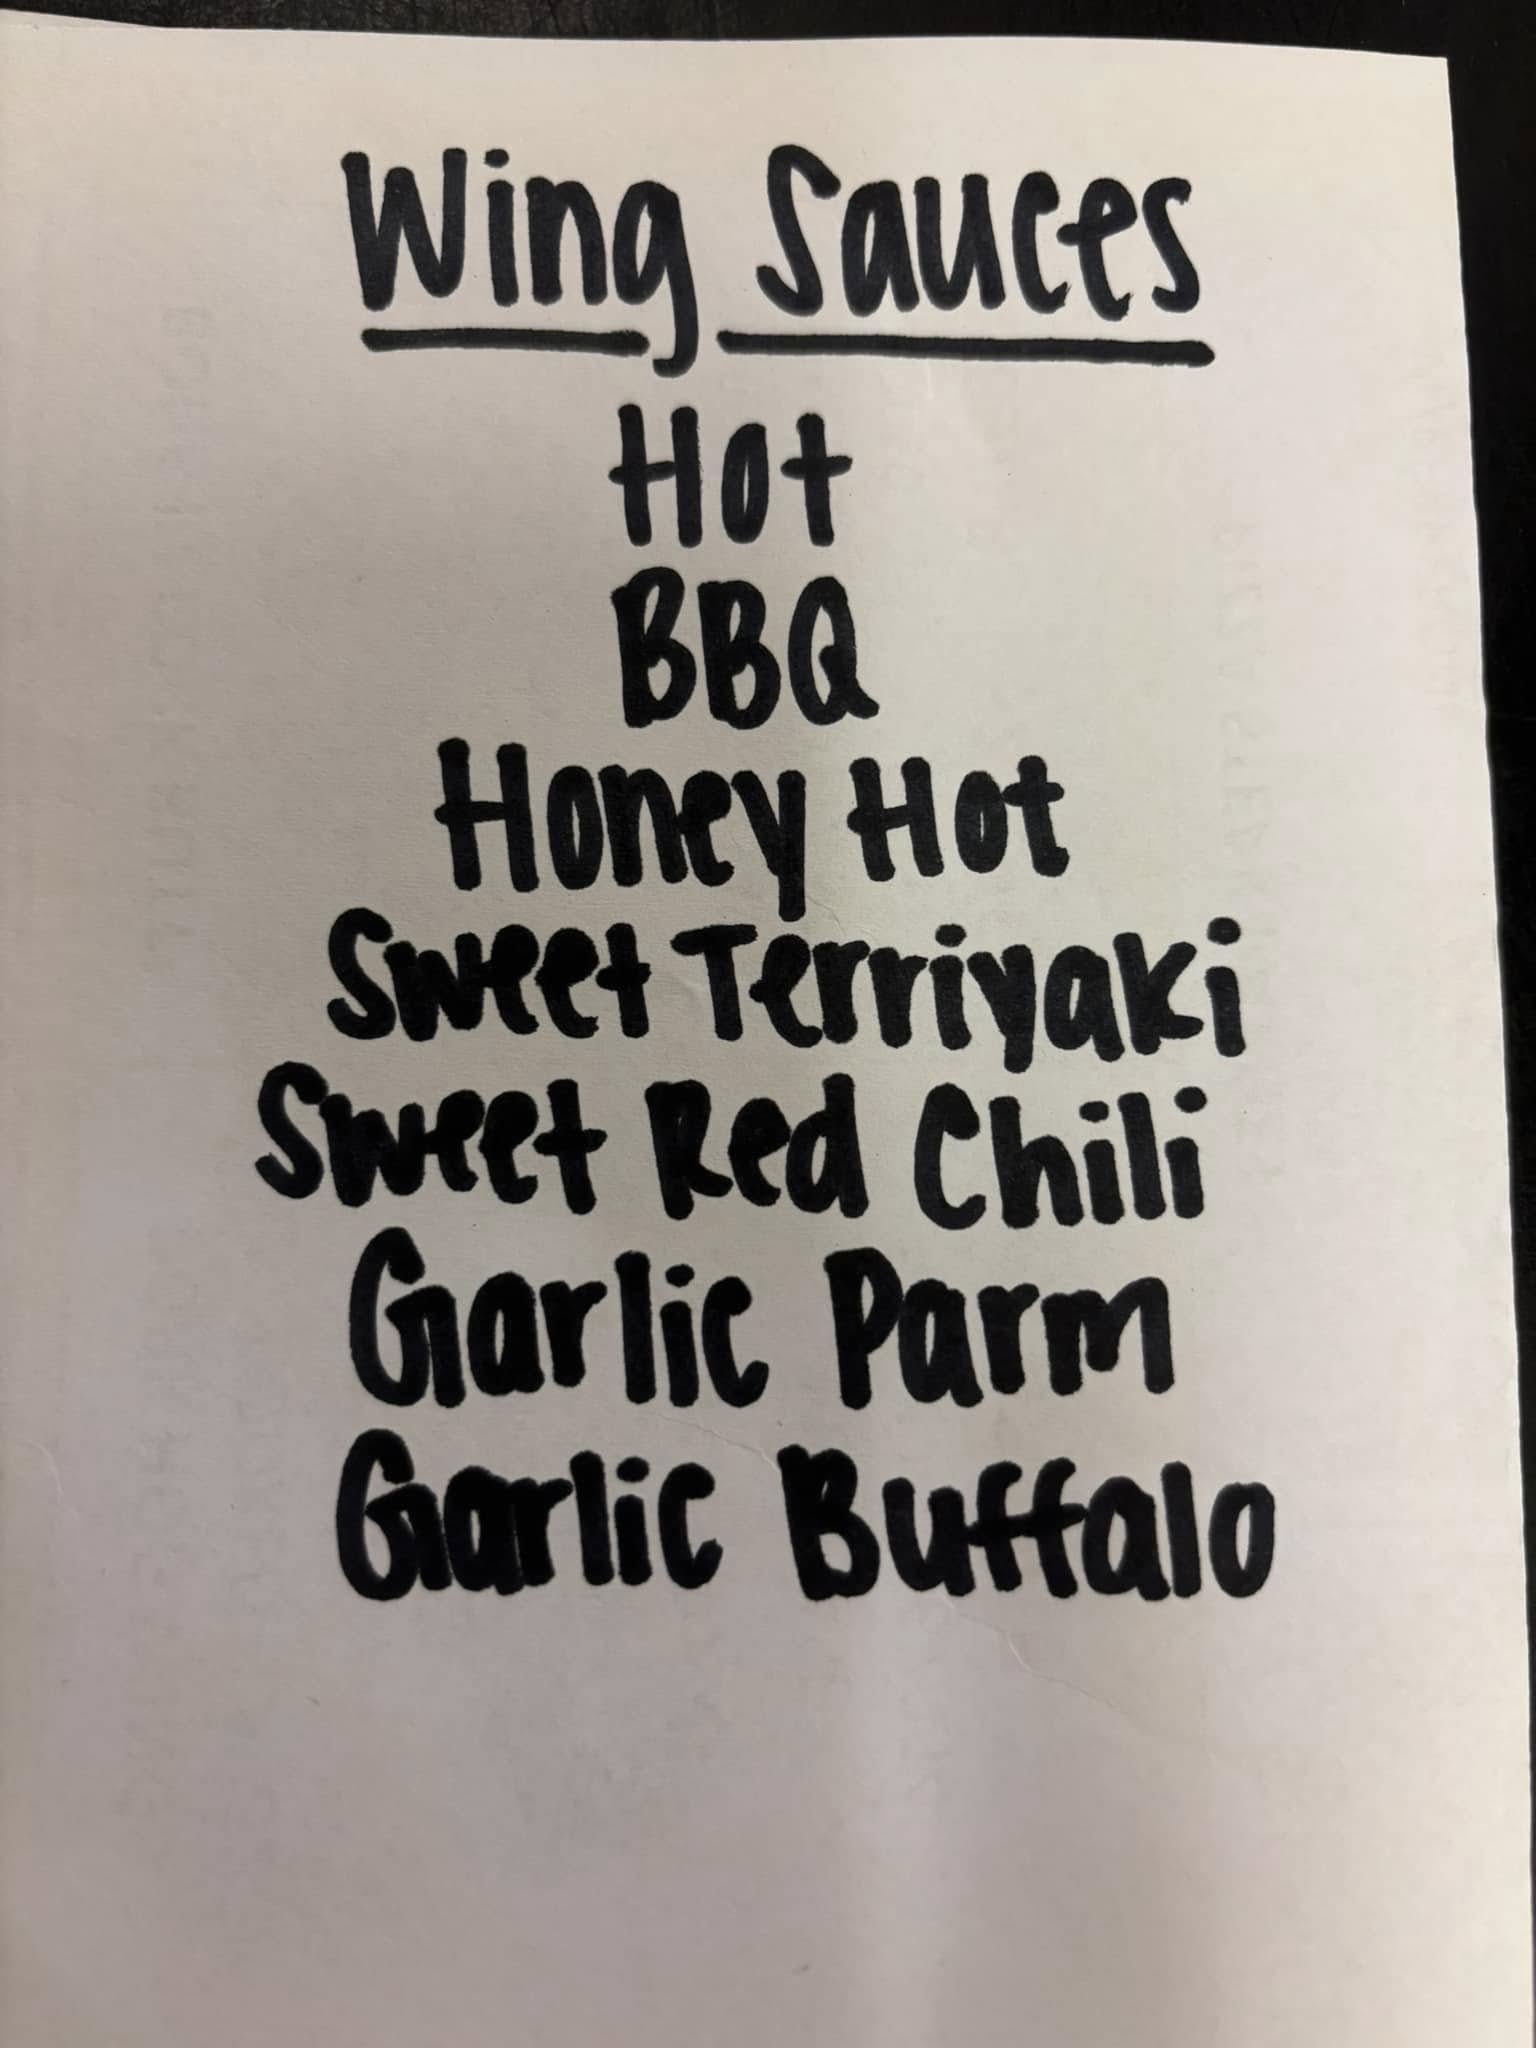 Wing Sauces
Hot
BBQ
Honey Hot
Sweet Terriyaki
Sweet Red Chili
Garlic Parm
Garlic Buffalo